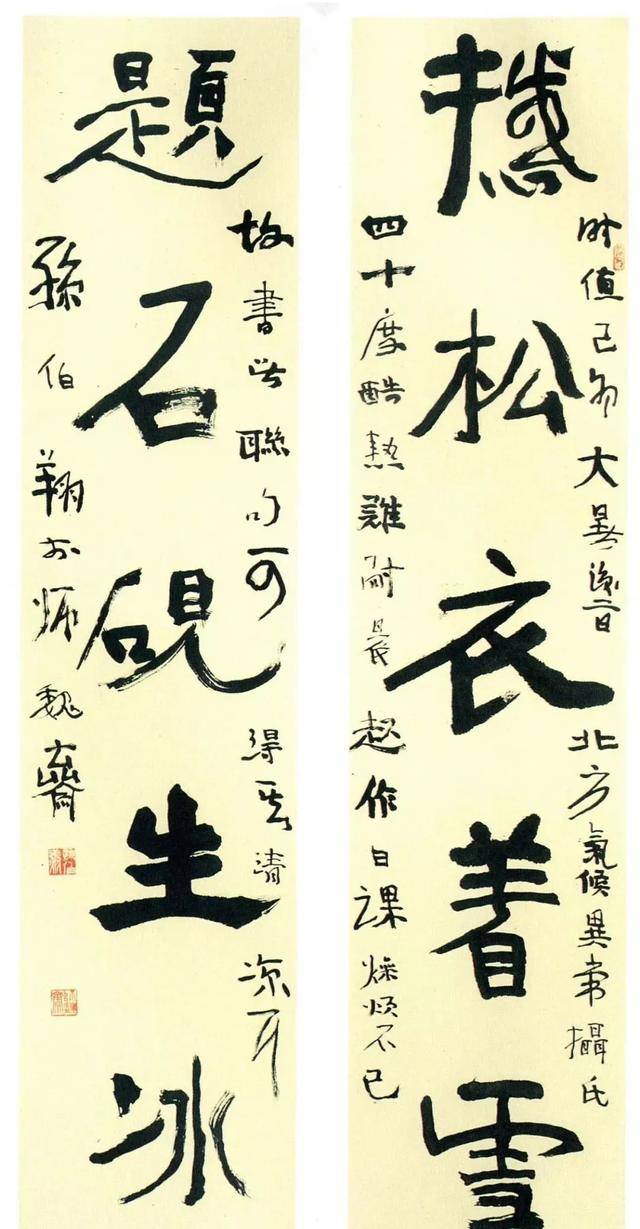 撼松衣着雪
時值己卯大暑後二日北方氣候異常攝氏
四十度酷熱難耐晨起作日課燥煩不已
題石硯生冰
故書此聯句可得其清凉耳
孫伯翔於師魏齋